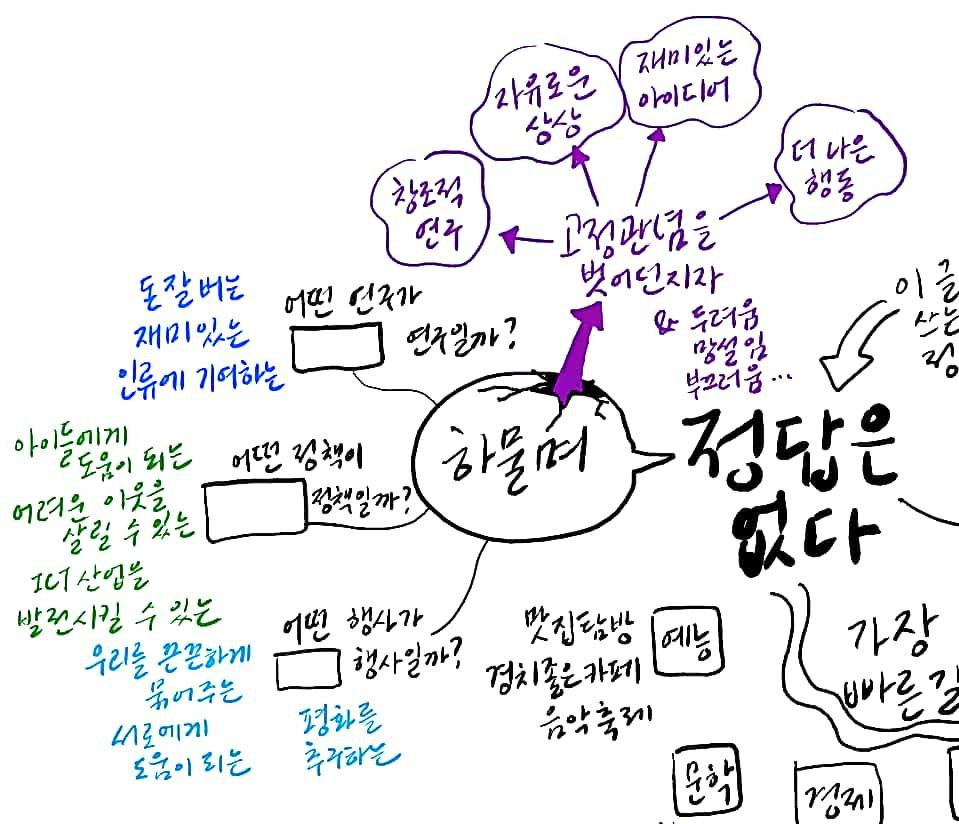 자유로운
상상
재미있는
아이디어
더 나은
행동
창조적
연구
고정관념을
벗어던지자
& 두려움
망설임
부끄러움...
돈 잘 버는
재미있는
인류에 기여하는
어떤 연구가
연구일까?
이 글
쓰는
정
하물며
정답은
없다
아이들에게
도움이 되는
어려운 이웃을
살릴 수 있는
ICT 산업을
발전시킬 수 있는
어떤 정책이
정책일까?
어떤 행사가
행사일까?
우리를 끈끈하게
묶어주는
서로에게
도움이 되는
평화를
추구하는
맛집탐방
경치좋은카페
음악축제
예능
가장
빠른길
문학
경제